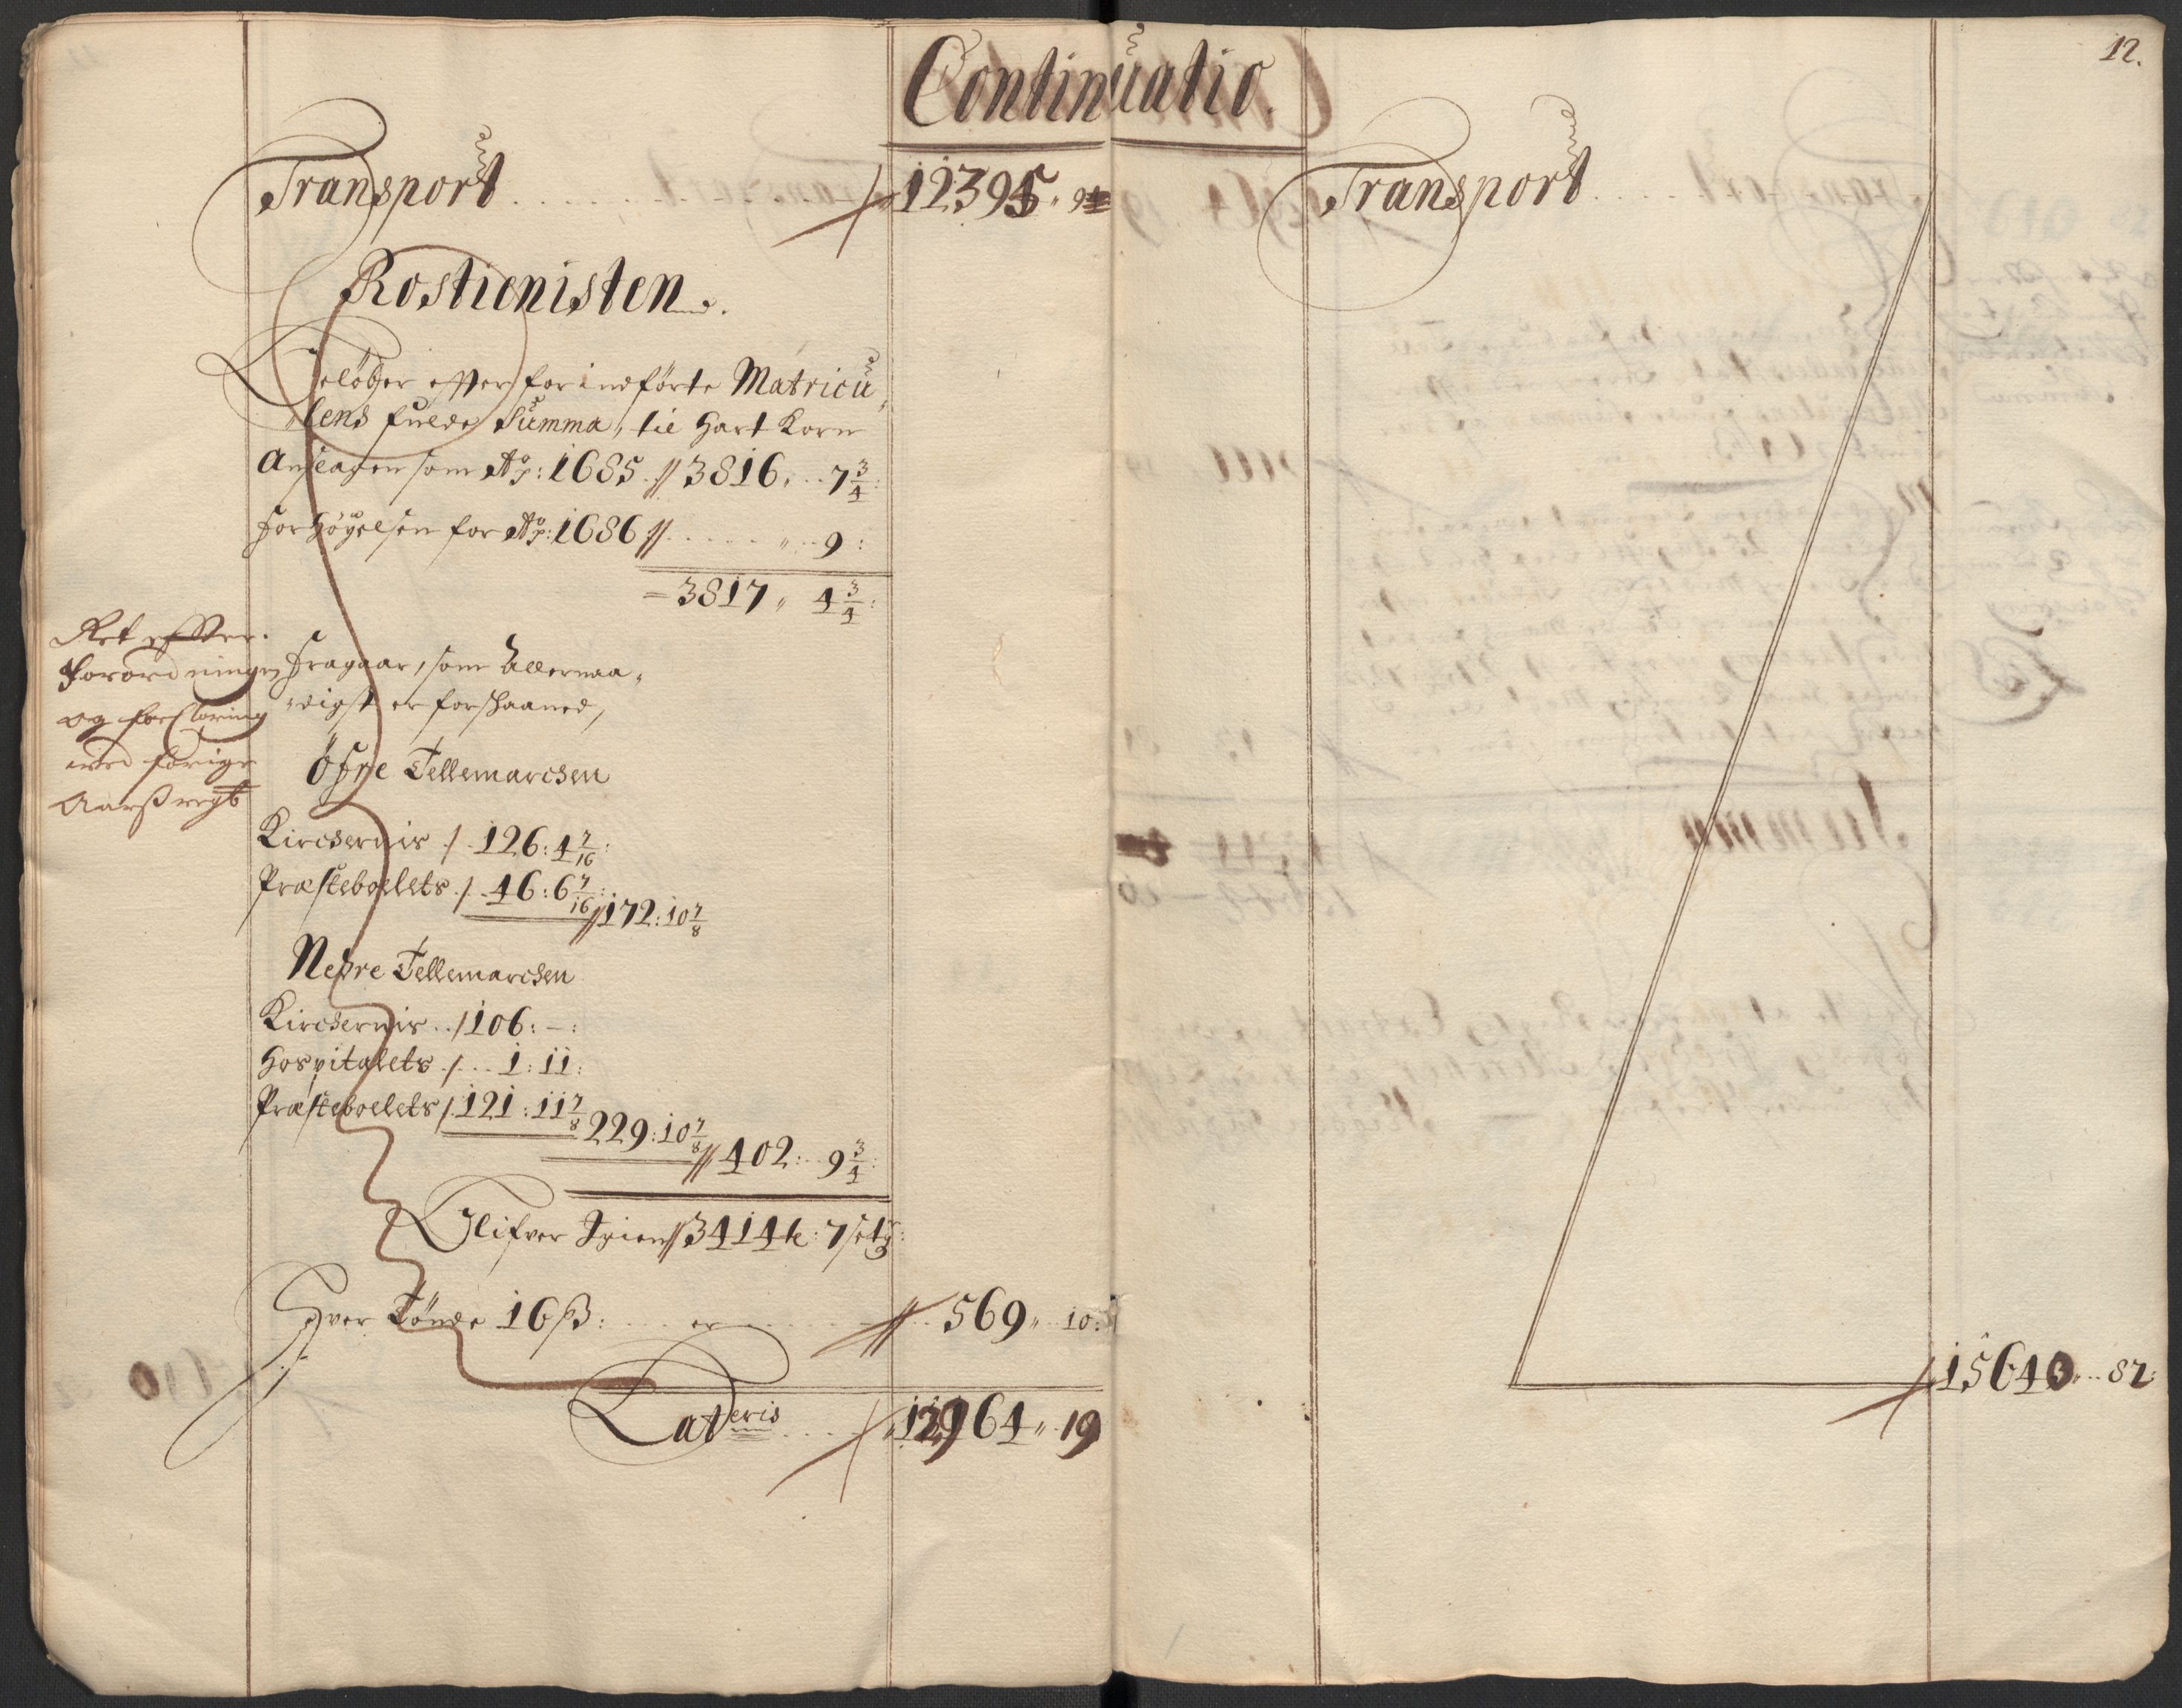 12.
Continuatio.
Transport . . . . . 12395 " 9
Rostienisten.
Beløber efter forindførte Matricu
lens fulde Summa, til Hart Korn
Anslagen som Aō: 1685 // 3816 " 7 3/4:
Forhøyelsen for Aō: 1686 // . . . . " 9:
3817 " 4 3/4:
Ret efter
Forordningen
og forclaring
ved forige
Aars regt
Fragaar, som Allernaa,
digst er forskaaned,
Øfre Tellemarcken
Kirchernis / 126: 4 7/16:
Præsteboelets / 46: 6 7/16: // 172: 10 7/8
Nedre Tellemarcken
Kirchernis . . / 106: - :
Hospitalets / . . . 1: 11:
Præsteboelets / 121: 11 7/8
229: 10 7/8 // 402: 9 3/4:
Blifver Igien // 3414 te: 7 settg:
Hver Tønde 16 ß: . . . er . . . . // 569 " 10:
Lateris . . . . 12964 " 19
Transport . . . . .
15640 " 82: